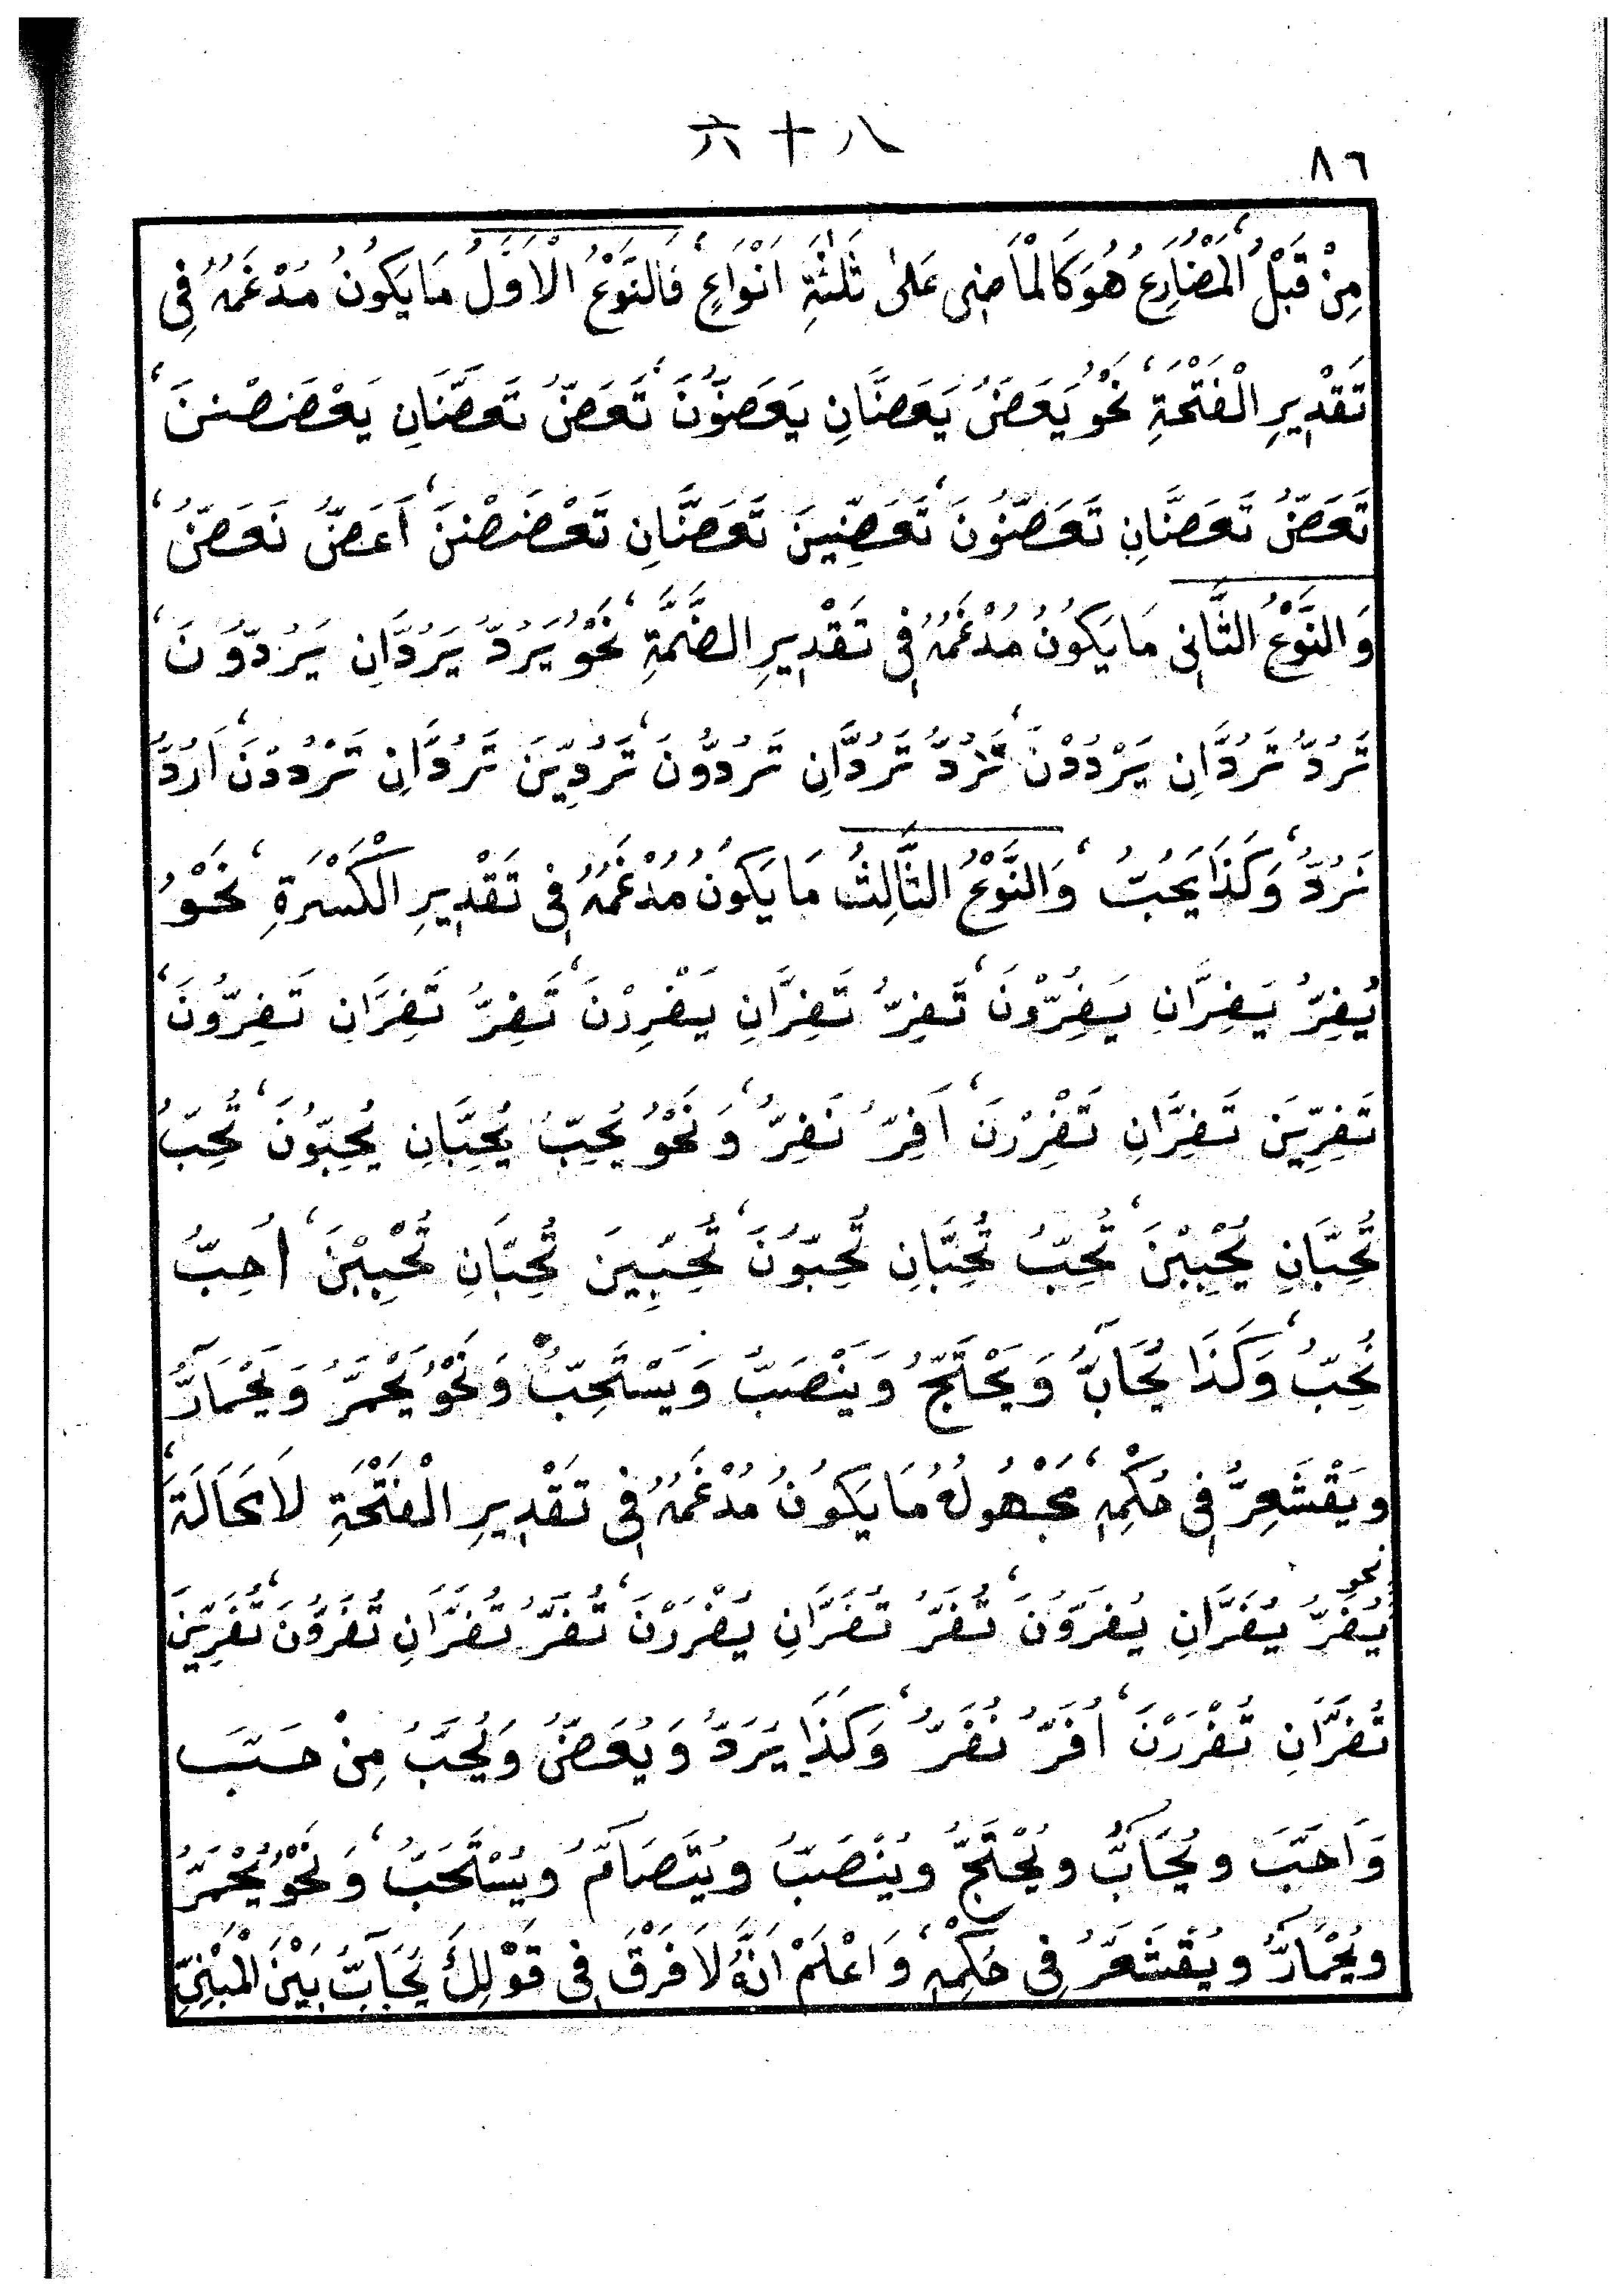 六十八
٨٦
مِنْ قَبْلُ اَلْمُضَارِعُ هُوَ كَالْمَاضِى عَلٰى ثَلٰثَةِ اَنْوَاعٍ، فَالنَّوْعُ الْاَوَّلُ مَا يَكُونُ مُدْغَمُهُ فِى
تَقْدِيرِ الْفَتْحَةِ، نَحْوُ يَعَضُّ يَعَضَّانِ يَعَضُّونَ، تَعَضُّ تَعَضَّانِ يَعْضَضْنَ،
تَعَضُّ تَعَضَّانِ تَعَضُّونَ، تَعَضِّينَ تَعَضَّانِ تَعْضَضْنَ، اَعَضُّ نَعَضُّ،
وَالنَّوْعُ الثَّانِى مَا يَكُونُ مُدْغَمُهُ فِى تَقْدِيرِ الضَّمَّةِ، نَحْوُ يَرُدُّ يَرُدَّانِ يَرُدُّونَ،
تَرُدُّ تَرُدَّانِ يَرْدُدْنَ، تَرُدُّ تَرُدَّانِ تَرُدُّونَ، تَرُدِّينَ تَرُدَّانِ تَرْدُدْنَ، اَرُدُّ
نَرُدُّ، وَكَذَا يَحُبُّ، وَالنَّوْعُ الثَّالِثُ مَا يَكُونُ مُدْغَمُهُ فِى تَقْدِيرِ الْكَسْرَةِ، نَحْوُ
يَفِرُّ يَفِرَّانِ يَفِرُّونَ، تَفِرُّ تَفِرَّانِ يَفْرِرْنَ، تَفِرُّ تَفِرَّانِ تَفِرُّونَ،
تَفِرِّينَ تَفِرَّانِ تَفْرِرْنَ، اَفِرُّ نَفِرُّ، وَنَحْوُ يُحِبُّ يُحِبَّانِ يُحِبُّونَ، تُحِبُّ
تُحِبَّانِ يُحْبِبْنَ، تُحِبُّ تُحِبَّانِ تُحِبُّونَ، تُحِبِّينَ تُحِبَّانِ تُحْبِبْنَ، اُحِبُّ
نُحِبُّ، وَكَذَا يُحَابُّ وَيَحْتَجُّ وَيَنْصَبُّ وَيَسْتَحِبُّ وَنَحْوُ يَحْمَرُّ وَيَحْمَارُّ
وَيَقْشَعِرُّ فِى حُكْمِهِ، مَجْهُولُهُ مَا يَكُونُ مُدْغَمُهُ فِى تَقْدِيرِ الْفَتْحَةِ لَا مَحَالَةَ،
نحو
يُفَرُّ يُفَرَّانِ يُفَرُّونَ، تُفَرُّ تُفَرَّانِ يُفْرَرْنَ، تُفَرُّ تُفَرَّانِ تُفَرُّونَ، تُفَرِّينَ
تُفَرَّانِ تُفْرَرْنَ، اُفَرُّ نُفَرُّ، وَكَذَا يُرَدُّ وَيُعَضُّ وَيُحَبُّ مِنْ حَبَّ
وَاَحَبَّ وَيُحَابُّ وَيُحْتَجُّ وَيُنْصَبُّ وَيُتَصَامُّ وَيُسْتَحَبُّ، وَنَحْوُ يُحْمَرُّ
وَيُحْمَارُّ وَيُقْشَعَرُّ فِى حُكْمِهِ، وَاعْلَمْ اَنَّهُ لَا فَرْقَ فِى قَوْلِكَ يُحَابُّ بَيْنَ الْمَبْنِىِّ